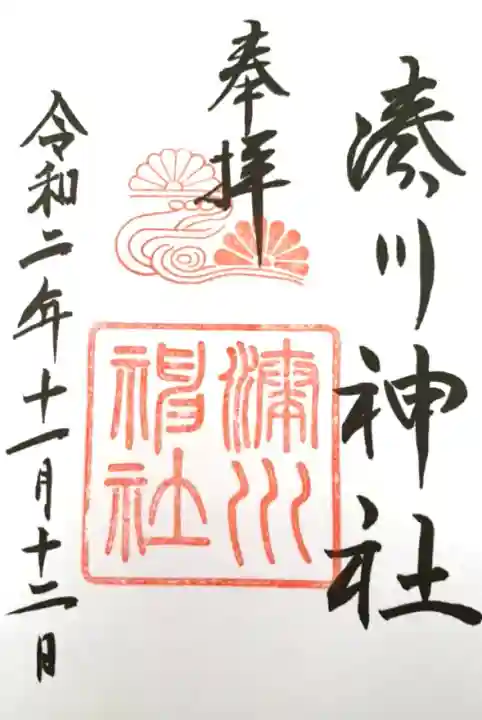 湊川神社
奉拝
湊川神社
令和二年十一月十二日